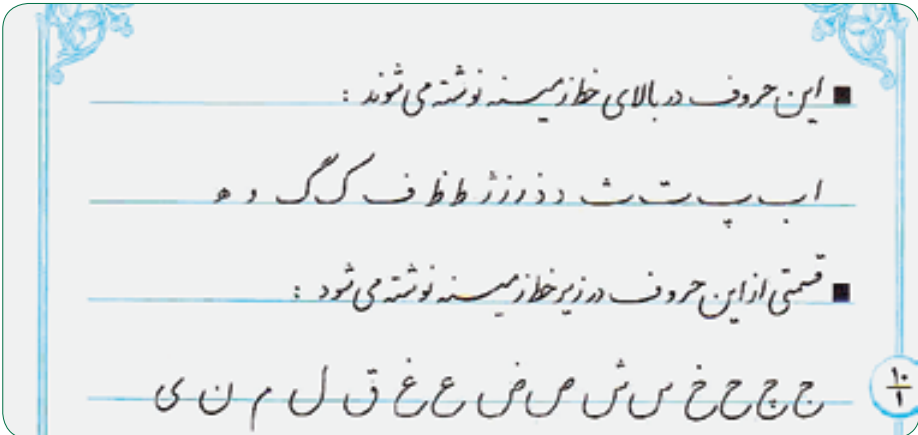 ■ این حروف در بالای خط زمینه نوشته می‌شوند :
ا ب پ ت ث د ذ ر ز ژ ط ظ ف ک گ و ه
■ قسمتی از این حروف در زیر خط زمینه نوشته می‌شود :
ج چ ح خ س ش ص ض ع غ ق ل م ن ی
۱۰
۱